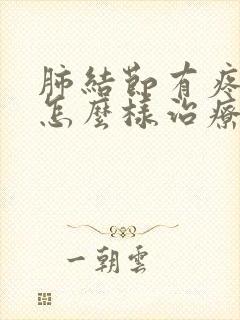 肺結節有疼
怎麼樣治療
一朝雲